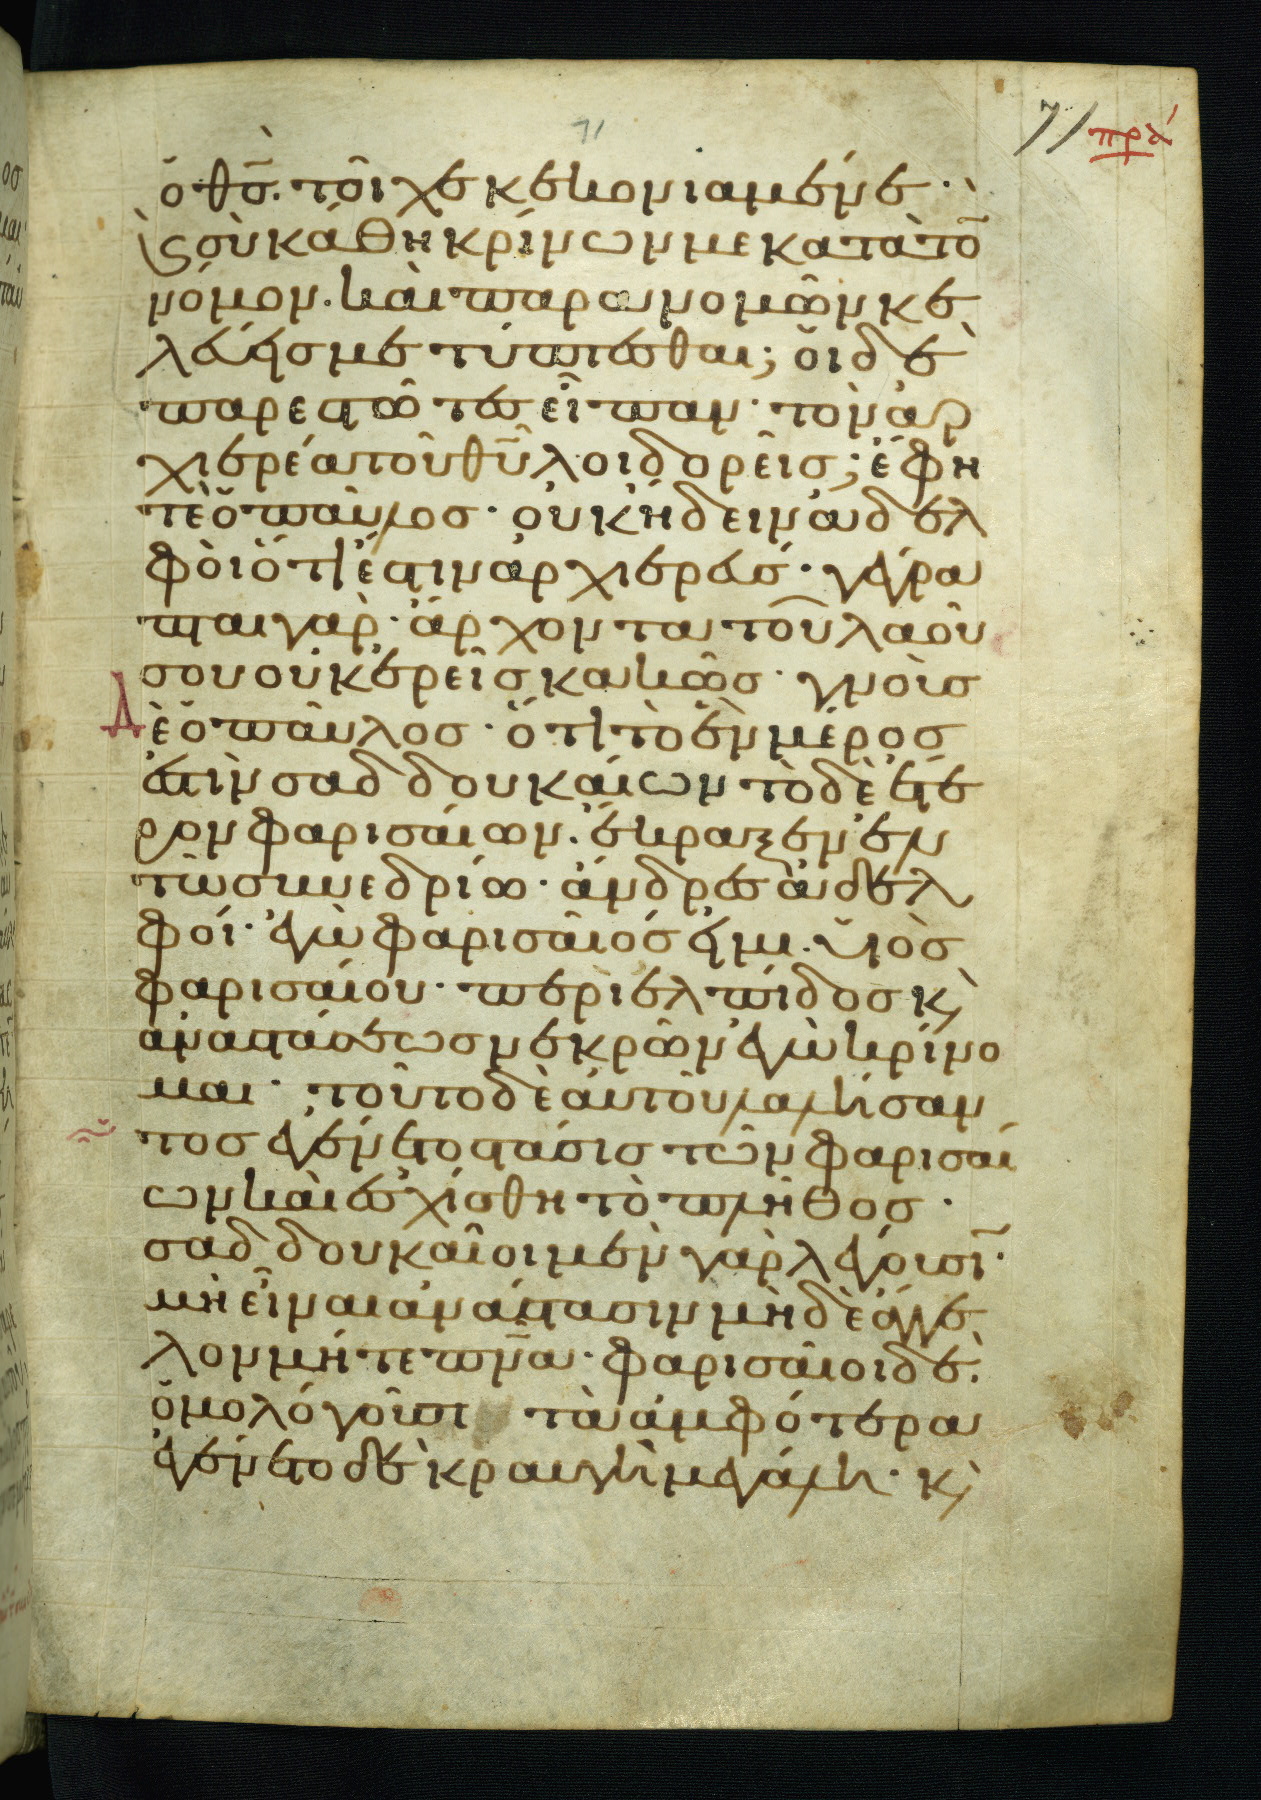 71
71 πρά
ὁ θς̄. τοῖχε κεκονιαμένε·
ϗ σὺ κάθη κρίνων με κατὰ τὸ
νόμον. καὶ παρανομῶν κε
λεύησ με τύπτεσθαι; ὁι δὲ
παρεστῶτεσ εἶπαν· τὸν ἀρ
χιερέα τοῦ θῡ λοιδορεῖισ; ἔφη
τε ὁ παῦλοσ· οὐκ ἤδειν ἀδελ
φοὶ ὅτι ἐστιν ἀρχιερεύσ· γέγρα
πται γὰρ· ἄρχοντα τοῦ λαοῦ
σου οὐκ ἐρεῖσ κακῶσ· γνοὺσ
Δὲ ὁ παῦλοσ· ὅτι τὸ ἓν μέροσ
ἐστὶν σαδδουκαίων τὸ δὲ ἕτε
ρον φαρισαίων. ἔκραξεν ἐν
τῶ συνεδρίω· ἄνδρεσ ἀδελ
φοί· ἐγὼ φαρισαῖόσ εἰμι. υἱὸσ
φαρισαίου· περὶ ἐλπίδοσ ϗ
ἀναστάσεωσ νεκρῶν ἐγὼ κρίνο
μαι· τοῦτο δὲ αὐτοῦ λαλήσαν
τοσ ἐγένετο στάσισ τῶν φαρισαί
ων καὶ ἐσχίσθη τὸ πλῆθοσ·
σαδδουκαῖοι μὲν γὰρ λέγουσῑ·
μὴ εἶναι ἀνάστασιν μὴδὲ ἄγγε
λον μήτε πν̄α· φαρισαῖοι δὲ.
ὁμολόγοῦσι τὰ ἀμφότερα
ἐγένετο δὲ κραυγὴ μεγάλη· ϗ